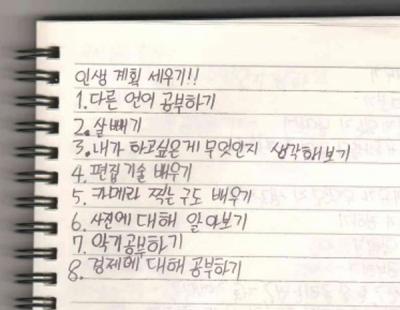 인생 계획 세우기!!
1. 다른 언어 공부하기
2. 살빼기
3. 내가 하고싶은게 무엇인지 생각해보기
4. 편집 기술 배우기
5. 카메라 찍는구도 배우기
6. 사진에 대해 알아보기
7. 악기공부하기
8. 경제에 대해 공부하기